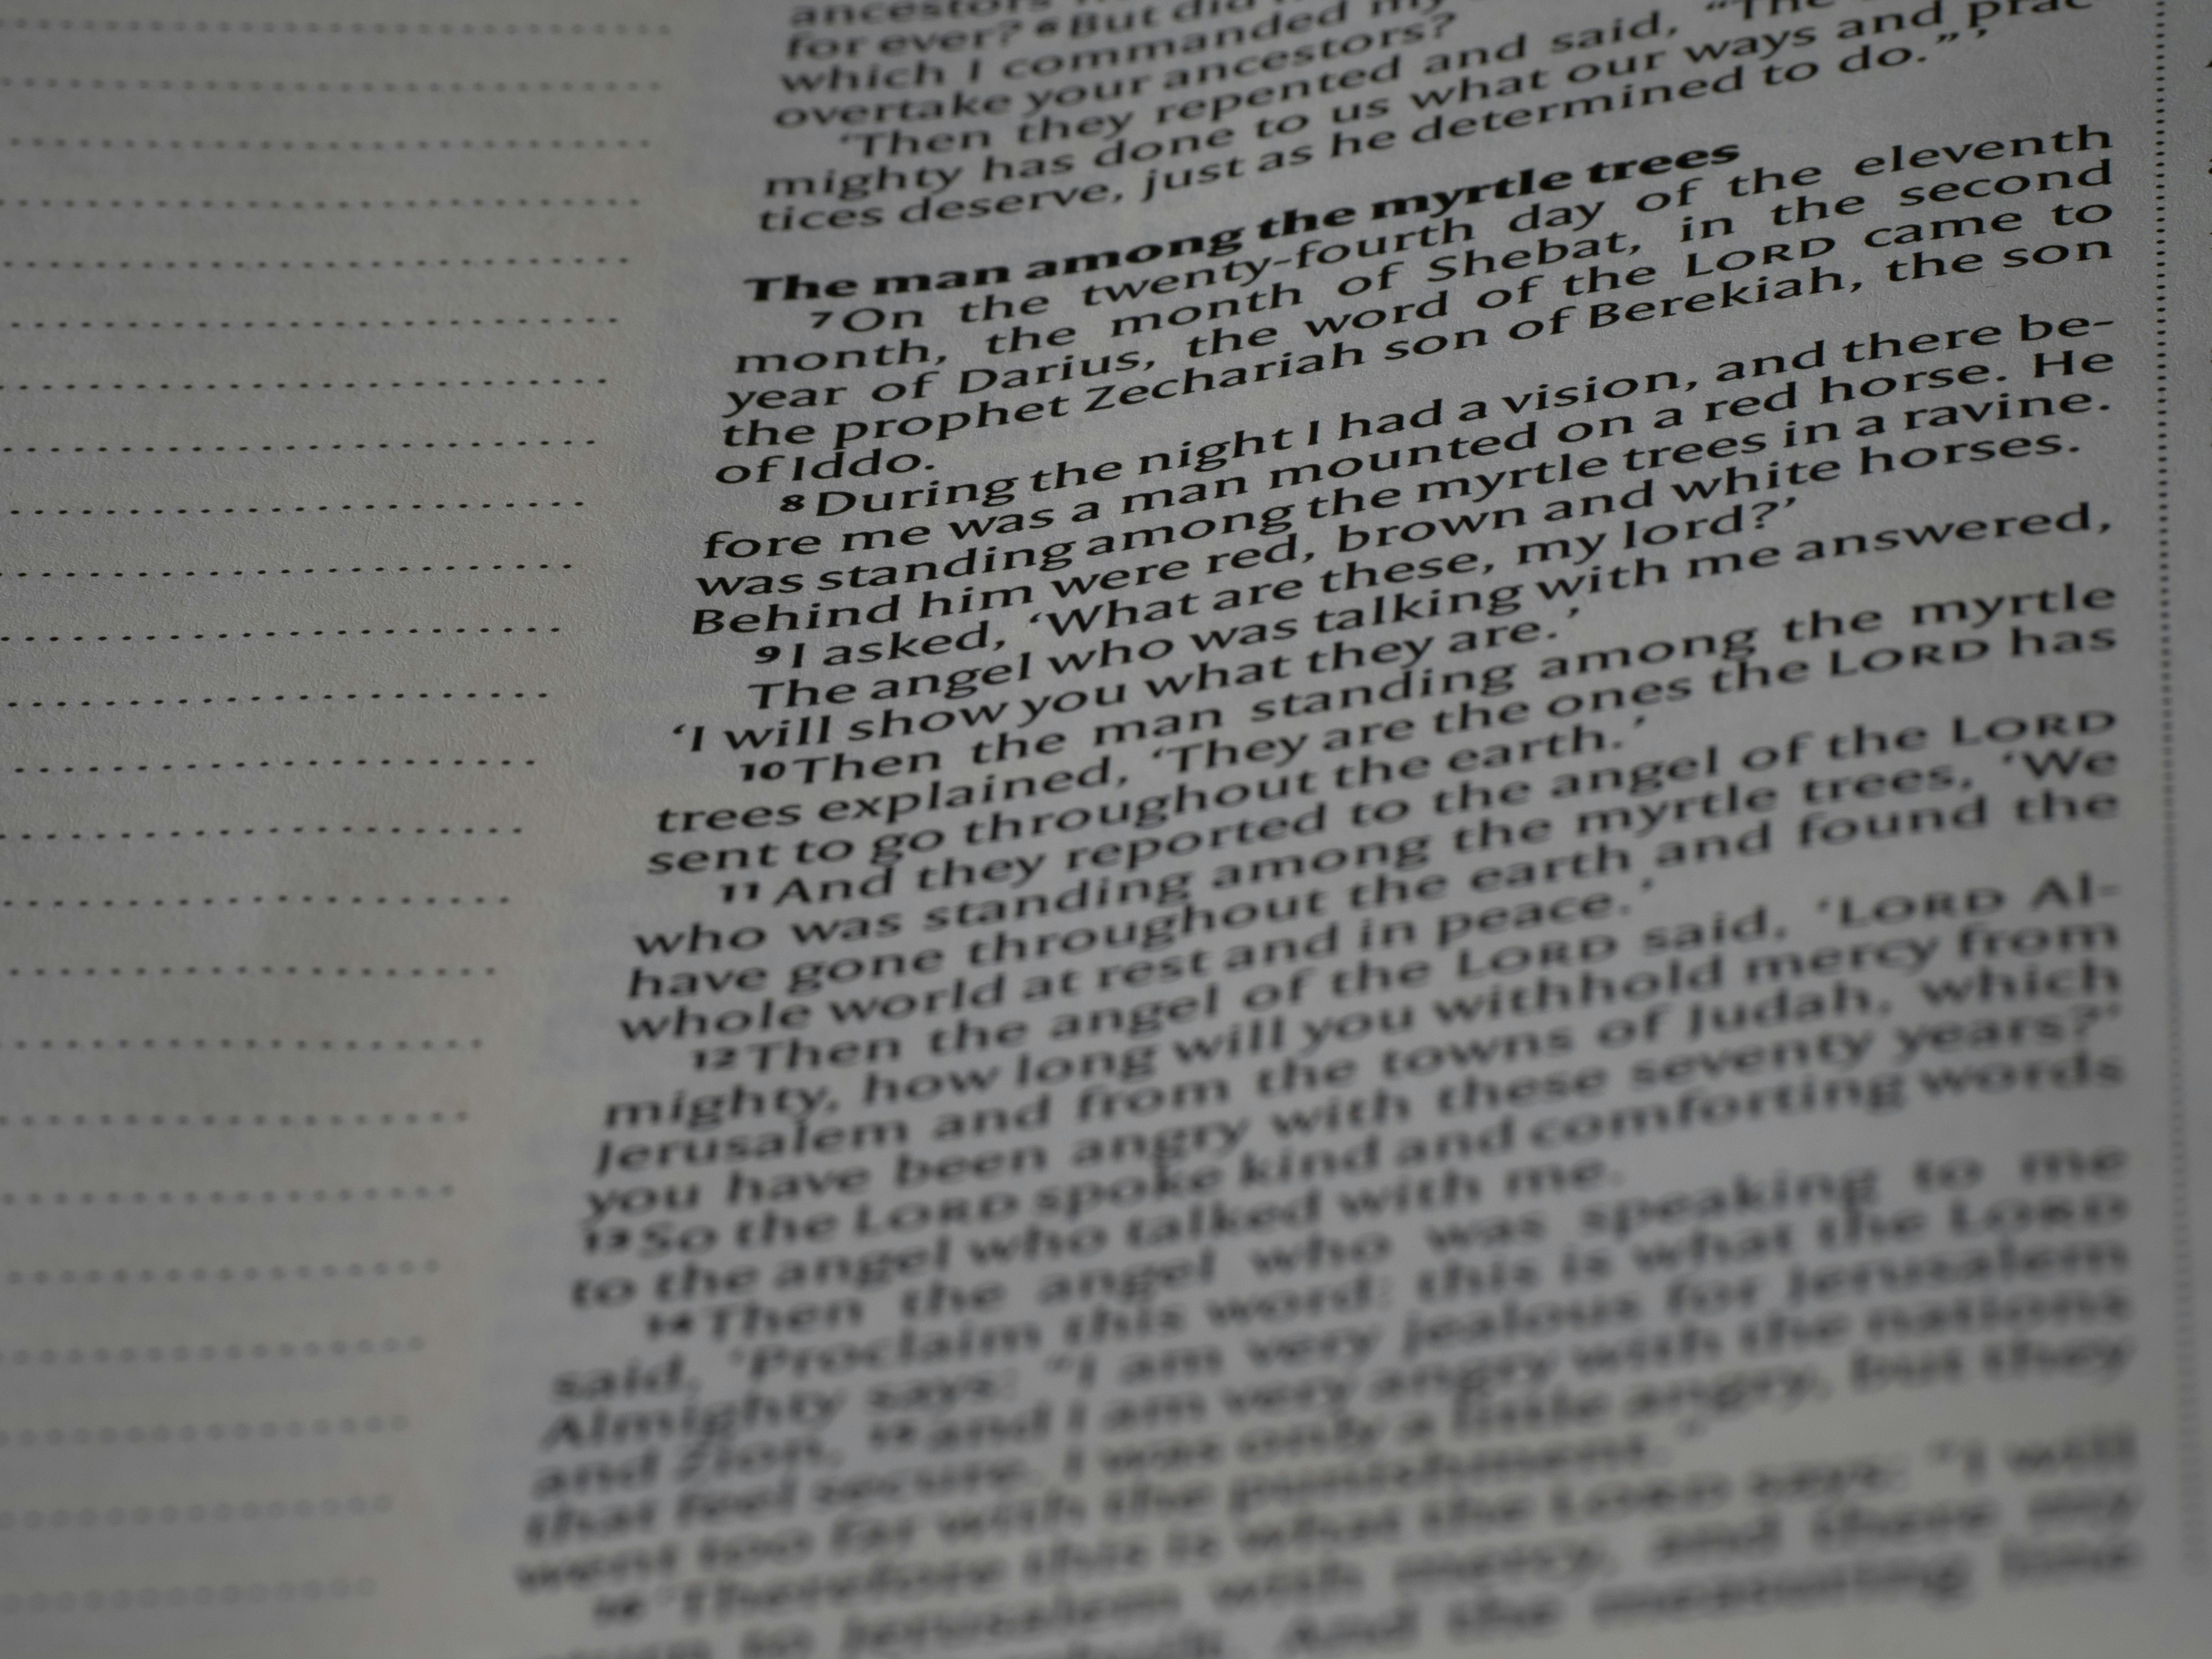 ancestors
for ever? 6 But did
which I commanded my
overtake your ancestors?
‘Then they repented and said, “The
mighty has done to us what our ways and prac-
tices deserve, just as he determined to do.” ’
The man among the myrtle trees
7 On the twenty-fourth day of the eleventh
month, the month of Shebat, in the second
year of Darius, the word of the LORD came to
the prophet Zechariah son of Berekiah, the son
of Iddo.
8 During the night I had a vision, and there be-
fore me was a man mounted on a red horse. He
was standing among the myrtle trees in a ravine.
Behind him were red, brown and white horses.
9 I asked, ‘What are these, my lord?’
The angel who was talking with me answered,
‘I will show you what they are.’
10 Then the man standing among the myrtle
trees explained, ‘They are the ones the LORD has
sent to go throughout the earth.’
11 And they reported to the angel of the LORD
who was standing among the myrtle trees, ‘We
have gone throughout the earth and found the
whole world at rest and in peace.’
12 Then the angel of the LORD said, ‘LORD Al-
mighty, how long will you withhold mercy from
Jerusalem and from the towns of Judah, which
you have been angry with these seventy years?’
13 So the LORD spoke kind and comforting words
to the angel who talked with me.
14 Then the angel who was speaking to me
said, ‘Proclaim this word: this is what the LORD
Almighty says: “I am very jealous for Jerusalem
and Zion, 15 and I am very angry with the nations
that feel secure. I was only a little angry, but they
went too far with the punishment.”
16 ‘Therefore this is what the LORD says: “I will
to Jerusalem with mercy, and there my
And the measuring line